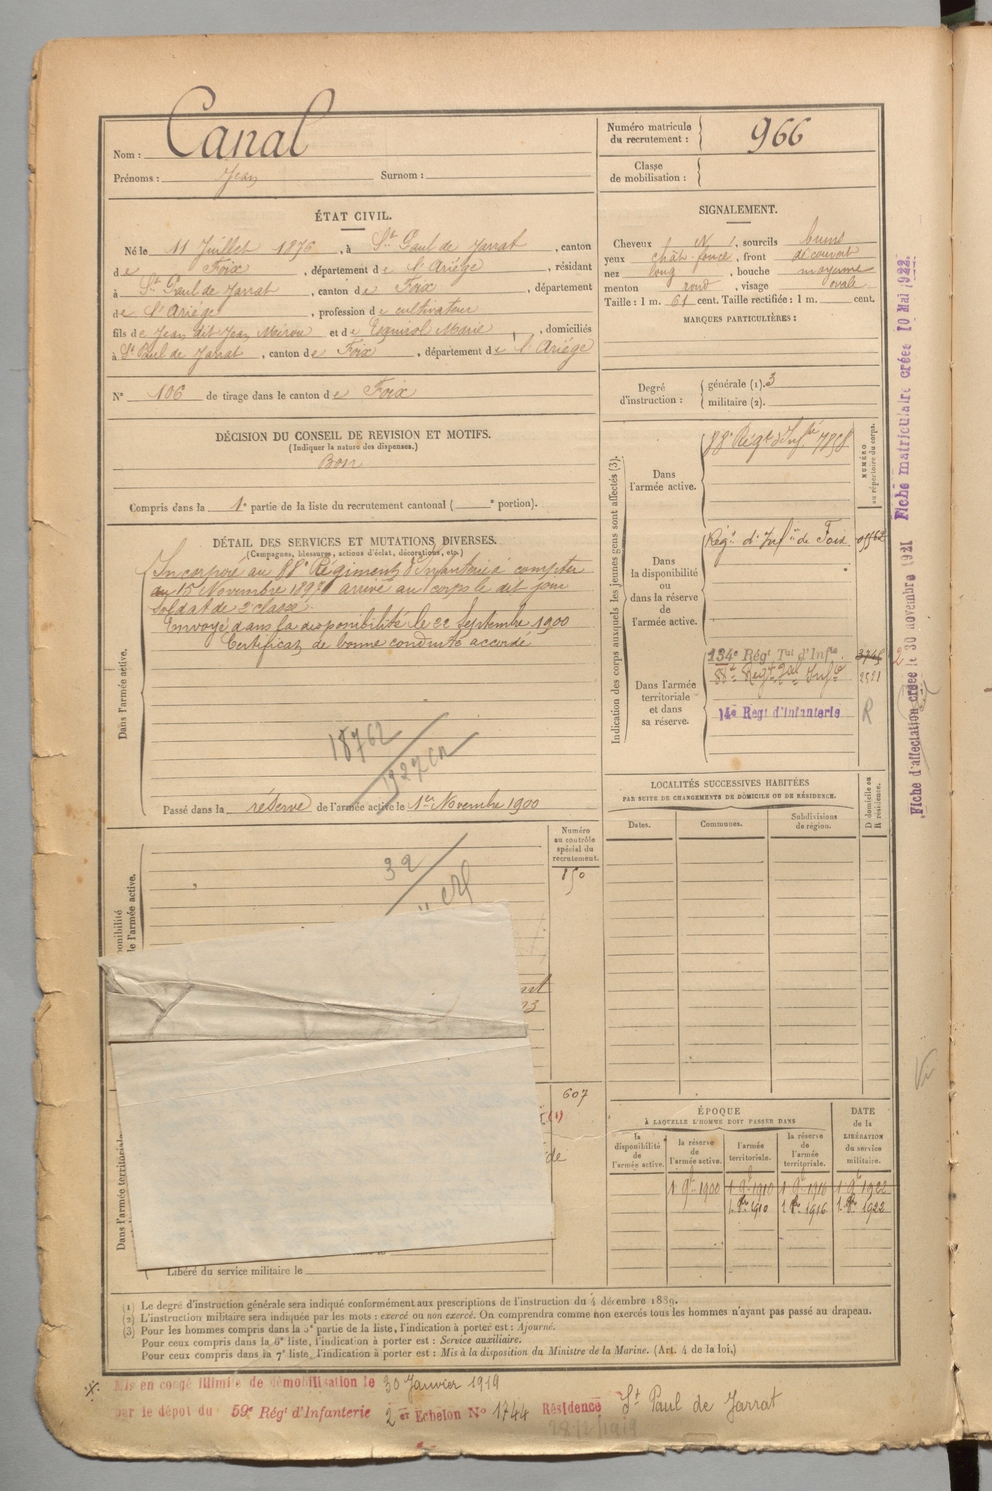 Nom : Canal
Prénoms : Jean Surnom :
Numéro matricule du recrutement : 966
Classe de mobilisation :
ÉTAT CIVIL.
Né le 11 Juillet 1876, à St Paul de Jarrat, canton
de Foix, département de l'Ariège, résidant
à St Paul de Jarrat, canton de Foix, département
de l'Ariège, profession de cultivateur
fils de Jean dit Jean Mirou et de Esquirol Marie, domiciliés
à St Paul de Jarrat, canton de Foix, département de l'Ariège
N° 106 de tirage dans le canton de Foix
SIGNALEMENT.
Cheveux N, sourcils bruns
yeux chât. foncé, front découvert
nez long, bouche moyenne
menton rond, visage ovale
Taille : 1 m. 61 cent. Taille rectifiée : 1 m. cent.
MARQUES PARTICULIÈRES :
Degré d'instruction : générale (1). 3
militaire (2).
DÉCISION DU CONSEIL DE REVISION ET MOTIFS.
(Indiquer la nature des dispenses.)
Bon
Compris dans la 1e partie de la liste du recrutement cantonal ( e portion).
DÉTAIL DES SERVICES ET MUTATIONS DIVERSES.
(Campagnes, blessures, actions d'éclat, décorations, etc.)
Dans l'armée active.
Incorporé au 88e Régiment d'Infanterie à compter
au 15 Novembre 1897 arrivé au corps le dit jour
soldat de 2e classe.
Envoyé dans la disponibilité le 22 Septembre 1900
Certificat de bonne conduite accordé
18762
1927
Passé dans la réserve de l'armée active le 1er Novembre 1900
Numéro au contrôle spécial du recrutement.
150
39
607
Dans l'armée territoriale
Libéré du service militaire le
Indication des corps auxquels les jeunes gens sont affectés (3).
NUMÉRO au répertoire du corps.
Dans l'armée active.
88e Régt d'Infie 7858
Dans la disponibilité ou dans la réserve de l'armée active.
Régt d'Infie de Foix
Dans l'armée territoriale et dans sa réserve.
134e Régt Tal d'Infie 3746
88e Regt Infie 2521
14e Régt d'Infanterie R
LOCALITÉS SUCCESSIVES HABITÉES
PAR SUITE DE CHANGEMENTS DE DOMICILE OU DE RÉSIDENCE.
Dates. Communes. Subdivisions de région. D domicile ou R résidence.
ÉPOQUE
À LAQUELLE L'HOMME DOIT PASSER DANS
DATE de la LIBÉRATION du service militaire.
la disponibilité de l'armée active. la réserve de l'armée active. l'armée territoriale. la réserve de l'armée territoriale.
1 9bre 1900 1 9bre 1910 1 9bre 1916 1 9bre 1922
1 8bre 1910 1 8bre 1916 1 8bre 1922
(1) Le degré d'instruction générale sera indiqué conformément aux prescriptions de l'instruction du 4 décembre 1889.
(2) L'instruction militaire sera indiquée par les mots : exercé ou non exercé. On comprendra comme non exercés tous les hommes n'ayant pas passé au drapeau.
(3) Pour les hommes compris dans la 5e partie de la liste, l'indication à porter est : Ajourné.
Pour ceux compris dans la 6e liste, l'indication à porter est : Service auxiliaire.
Pour ceux compris dans la 7e liste, l'indication à porter est : Mis à la disposition du Ministre de la Marine. (Art. 4 de la loi.)
Mis en congé illimité de démobilisation le 30 Janvier 1919
par le dépot du 59e Régt d'Infanterie 2er Echelon N° 1744 Résidence St Paul de Jarrat
28/2/1919
Fiche d'affectation créée le 30 novembre 1921 Fiche matriculaire créée 10 Mai 1922.